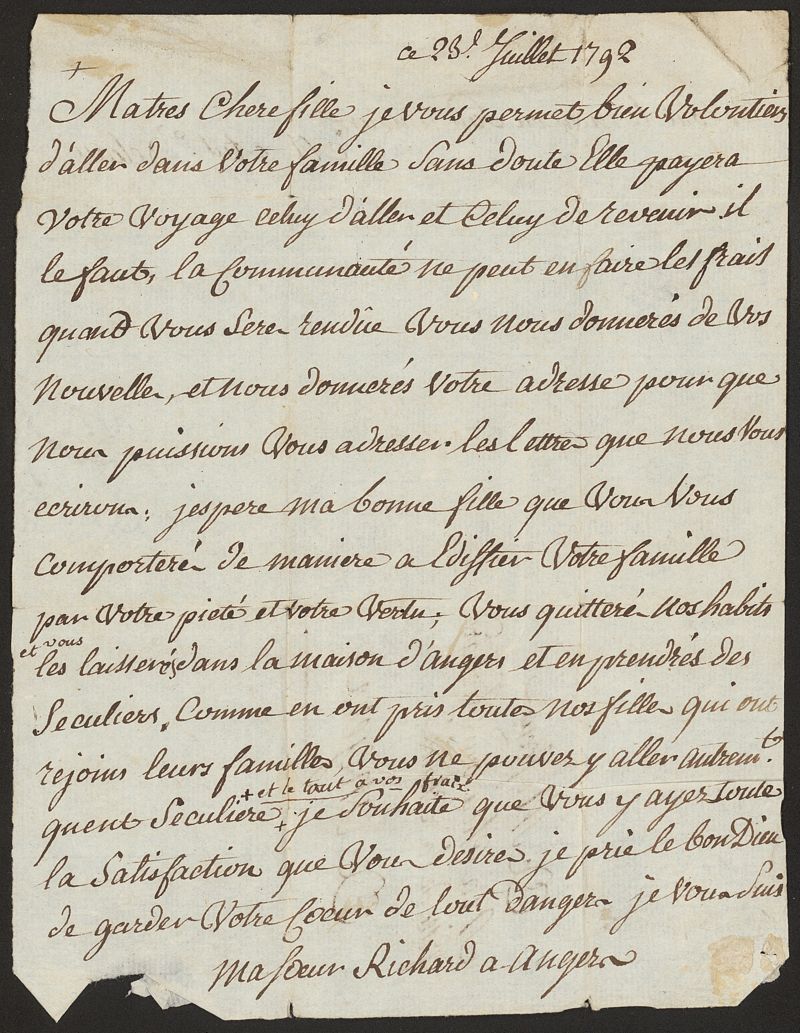 ce 23.d Juillet 1792
+
Matres Chere fille je vous permet bien Volontiers
d'aller dans Votre famille sans doute Elle payera
Votre Voyage celuy d'aller et Celuy de revenir il
le faut, la Communauté ne peut en faire les frais
quand Vous seres rendûe Vous nous donnerés de Vos
Nouvelles, et nous donnerés Votre adresse pour que
Nous puissions Vous adresser les lettres que nous Vous
ecrirons; j'espere ma bonne fille que Vous Vous
Comporterés de maniere a Ediffier Votre famille
par Votre pieté et votre Vertu; Vous quitterés nos habits
et vous
les laisserés dans la maison d'angers et en prendrés des
Seculiers, Comme en ont pris toutes nos filles qui ont
rejoins leurs familles, Vous ne pouvez y aller autrem.t
+ et le tout à vos fraix
quent Seculiere + je Souhaite que Vous y ayez toute
la Satisfaction que Vous desires je prie le bon Dieu
de garder Votre Coeur de tout dangers je vous suis
Ma soeur Richard a Angers